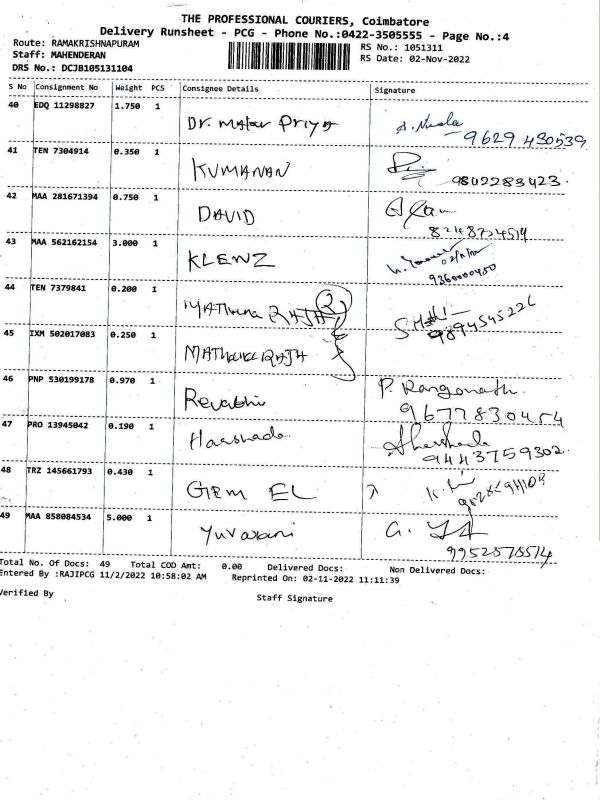 THE PROFESSIONAL COURIERS, Coimbatore
Delivery Runsheet - PCG - Phone No.:0422-3505555 - Page No.:4
Route: RAMAKRISHNAPURAM
Staff: MAHENDERAN
DRS No.: DCJB105131104
RS No.: 1051311
RS Date: 02-Nov-2022
S No Consignment No Weight PCS Consignee Details Signature
40 EDQ 11298827 1.750 1 Dr. Priya
9629430539
41 TEN 7304914 0.350 1 KUMANAN
9802283423.
42 MAA 281671394 0.750 1 DAVID
43 MAA 562162154 3.000 1 KLENZ
9360000450
44 TEN 7379841 0.200 1 RAJA 2
9894545226
45 IXM 502017083 0.250 1 RAJA
46 PNP 530199178 0.970 1 P. Ranganath.
9677830454
47 PRO 13945042 0.190 1 Haarshada
9443759302.
48 TRZ 145661793 0.430 1 GEM EL
49 MAA 858084534 5.000 1 Yuvarani
Total No. Of Docs: 49 Total COD Amt: 0.00 Delivered Docs: Non Delivered Docs:
Entered By :RAJIPCG 11/2/2022 10:58:02 AM Reprinted On: 02-11-2022 11:11:39
Verified By
Staff Signature